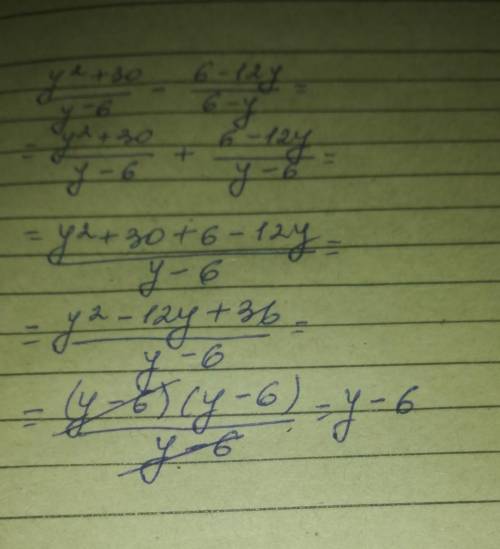 (y²+30)/(y-6) - (6-12y)/(6-y) =
= (y²+30)/(y-6) + (6-12y)/(y-6) =
= (y²+30+6-12y)/(y-6) =
= (y²-12y+36)/(y-6) =
= ((y-6)(y-6))/(y-6) = y-6